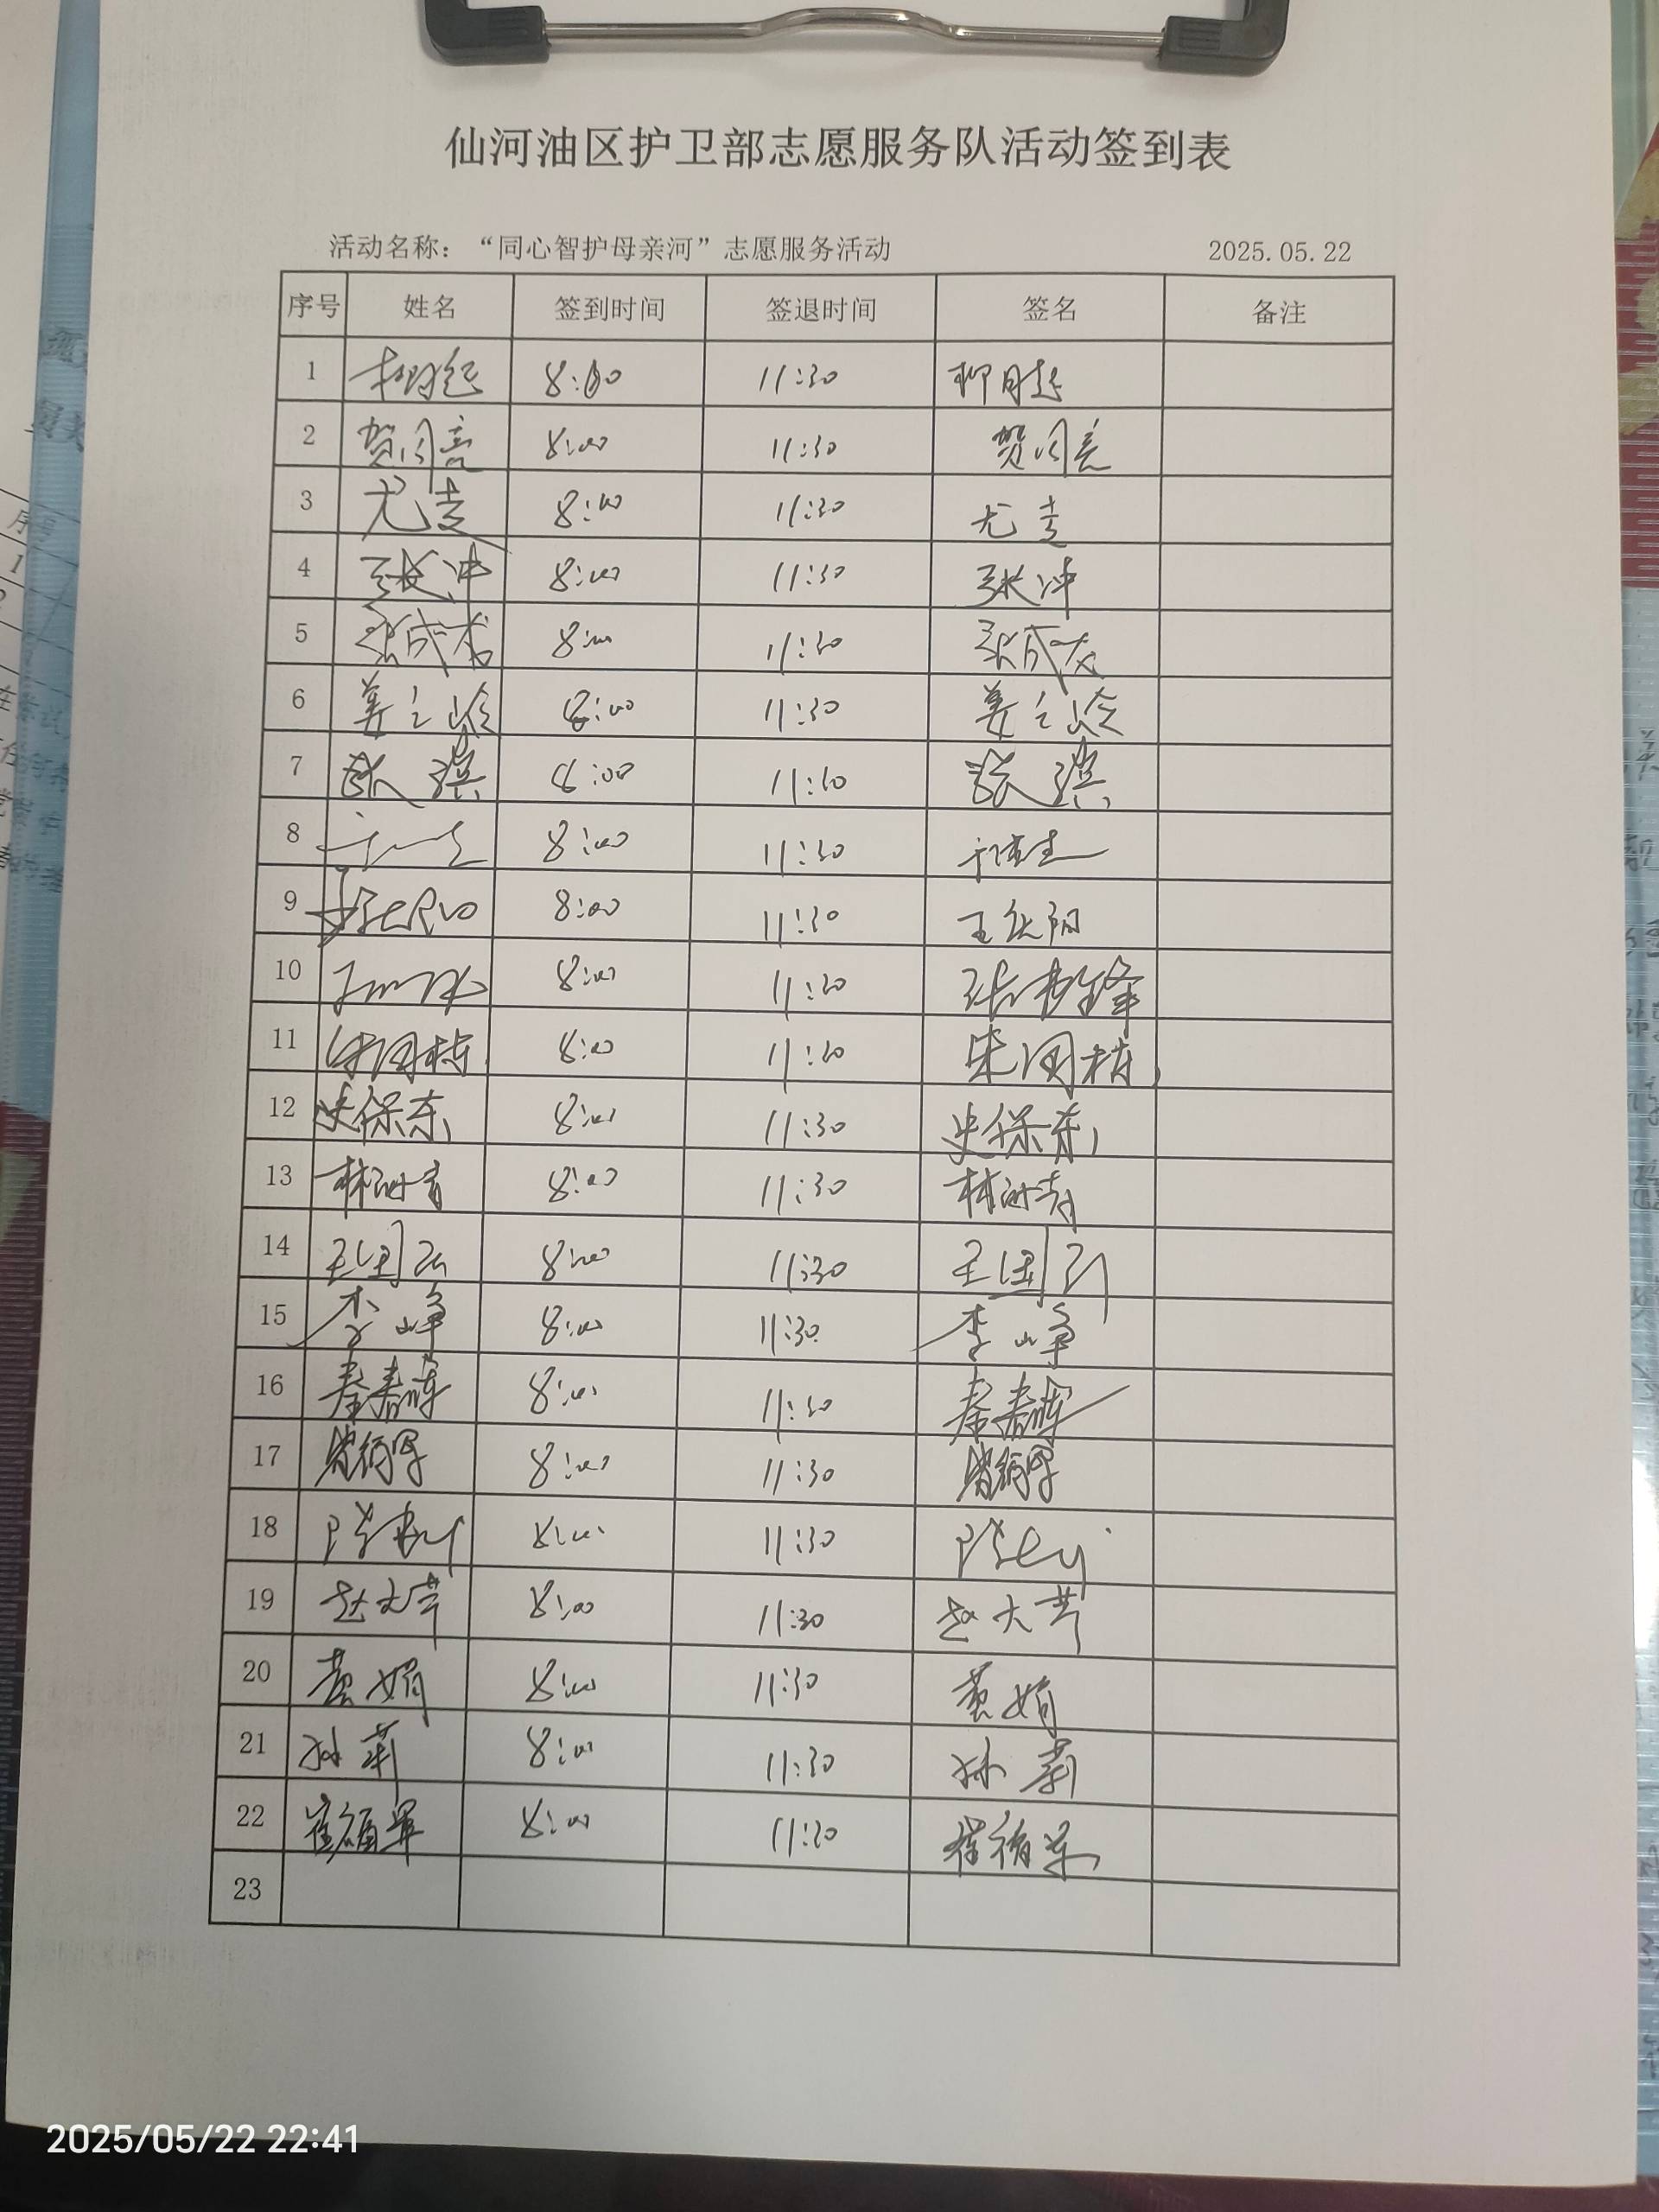 仙河油区护卫部志愿服务队活动签到表
活动名称：“同心智护母亲河”志愿服务活动 2025.05.22
序号 姓名 签到时间 签退时间 签名 备注
1 8:00 11:30 柳月起
2 贺同亮 8:00 11:30 贺同亮
3 尤志 8:00 11:30 尤志
4 张冲 8:00 11:30 张冲
5 张成 8:00 11:30 张成
6 姜之岭 8:00 11:30 姜之岭
7 张滨 8:00 11:30 张滨
8 8:00 11:30
9 8:00 11:30 王 阳
10 8:00 11:30 张 锋
11 朱国栋 8:00 11:30 朱国栋
12 史保东 8:00 11:30 史保东
13 林 8:00 11:30 林
14 王国 8:00 11:30 王国
15 李峥 8:00 11:30 李峥
16 秦春晖 8:00 11:30 秦春晖
17 8:00 11:30
18 陈 8:00 11:30 陈
19 赵大芹 8:00 11:30 赵大芹
20 黄娟 8:00 11:30 黄娟
21 孙莉 8:00 11:30 孙莉
22 崔福军 8:00 11:30 崔福军
23
2025/05/22 22:41